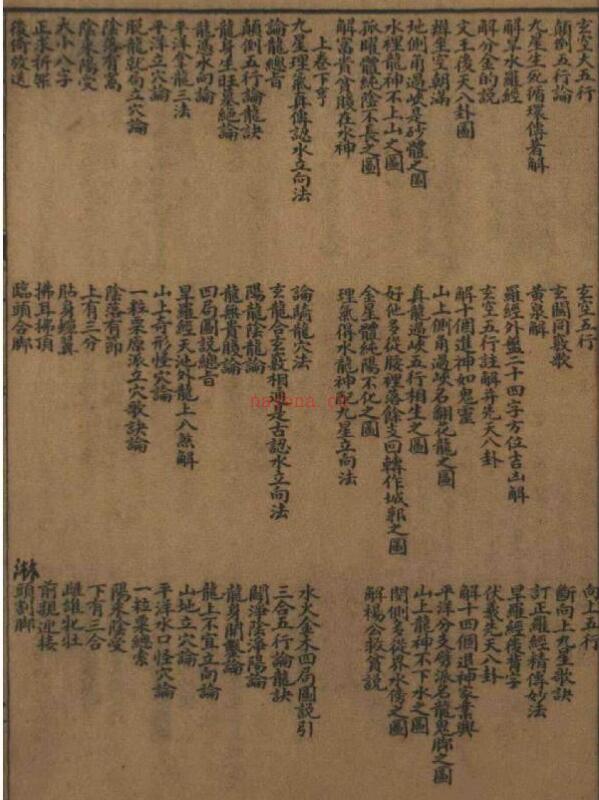 玄空大五行
玄空五行
向上五行
顛倒五行論
玄關同竅歌
斷向上九星歌訣
九星生死循環傳著解
黃泉解
訂正羅經精傳妙法
解旱水羅經
羅經外盤二十四字方位吉凶解
旱羅經後背字
解分金的說
玄空五行註解并先天八卦
伏羲先天八卦
文王後天八卦圖
解十個進神如鬼靈
解十四個進神家業興
辯坐空朝滿
山上側角過峽名翻花龍之圖
平洋分支劈派名龍鬼腳之圖
地側角過峽是砂體之圖
真龍過峽五行相生之圖
山上龍神不下水之圖
水裡龍神不上山之圖
好他多從腰裡落餘支回轉作城郭之圖
閃側多從界水傍之圖
孤曜體純陰不長之圖
金星體純陽不化之圖
解楊公救貧說
解富貴貧賤在水神
理氣得水龍神記九星立向法
上卷下亨
九星理氣真傳認水立向法
論騎龍穴法
水火金木四局圖說引
論龍總音
玄龍合玄竅相通是古認水立向法
三合五行論龍訣
顛倒五行論龍訣
陽龍陰龍論
關淨陰淨陽論
龍身生旺墓絕論
龍無貴賤論
龍身開鑿論
龍馮水向論
四局圖說總音
龍上不宜立向論
平洋登龍三法
旱羅經天池外龍上八煞解
山地立穴論
平洋立穴論
山上奇形怪穴論
平洋水口怪穴論
脫龍就局立穴論
一粒粟原派立穴歌訣論
一粒粟總索
陰落有窩
陰落有節
陽來陰受
陰來陽受
上有三分
下有三合
大小八字
貼身蟬翼
雌雄牝牡
正求折架
拂耳拂頂
前親迎接
後倚放送
臨頭合腳
淋頭割腳